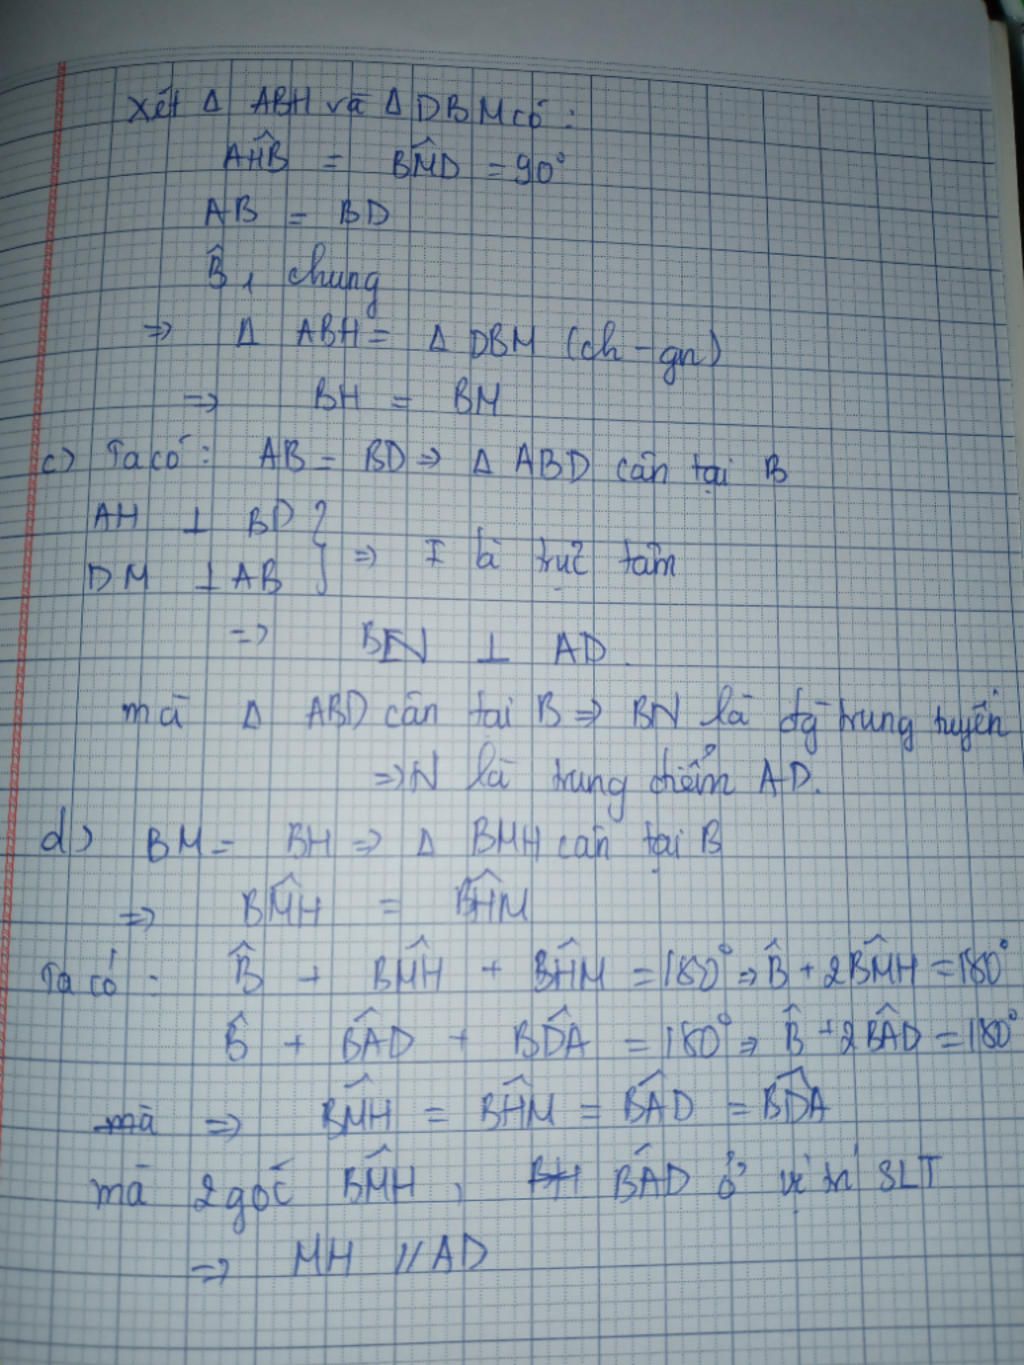 Xét Δ ABH và Δ DBM có :
AĤB = BM̂D = 90°
AB = BD
B̂, chung
=> Δ ABH = Δ DBM (ch - gn)
=> BH = BM
c) Ta có : AB = BD => Δ ABD cân tại B
AH ⊥ BD }
DM ⊥ AB } => I là trực tâm
=> BN ⊥ AD.
mà Δ ABD cân tại B => BN là đg trung tuyến
=> N là trung điểm AD.
d) BM = BH => Δ BMH cân tại B
=> BM̂H = BĤM
Ta có : B̂ + BM̂H + BĤM = 180° => B̂ + 2BM̂H = 180°
B̂ + BÂD + BD̂A = 180° => B̂ + 2BÂD = 180°
mà => BM̂H = BĤM = BÂD = BD̂A
mà 2 góc BM̂H, BH BÂD ở vị trí SLT
=> MH // AD